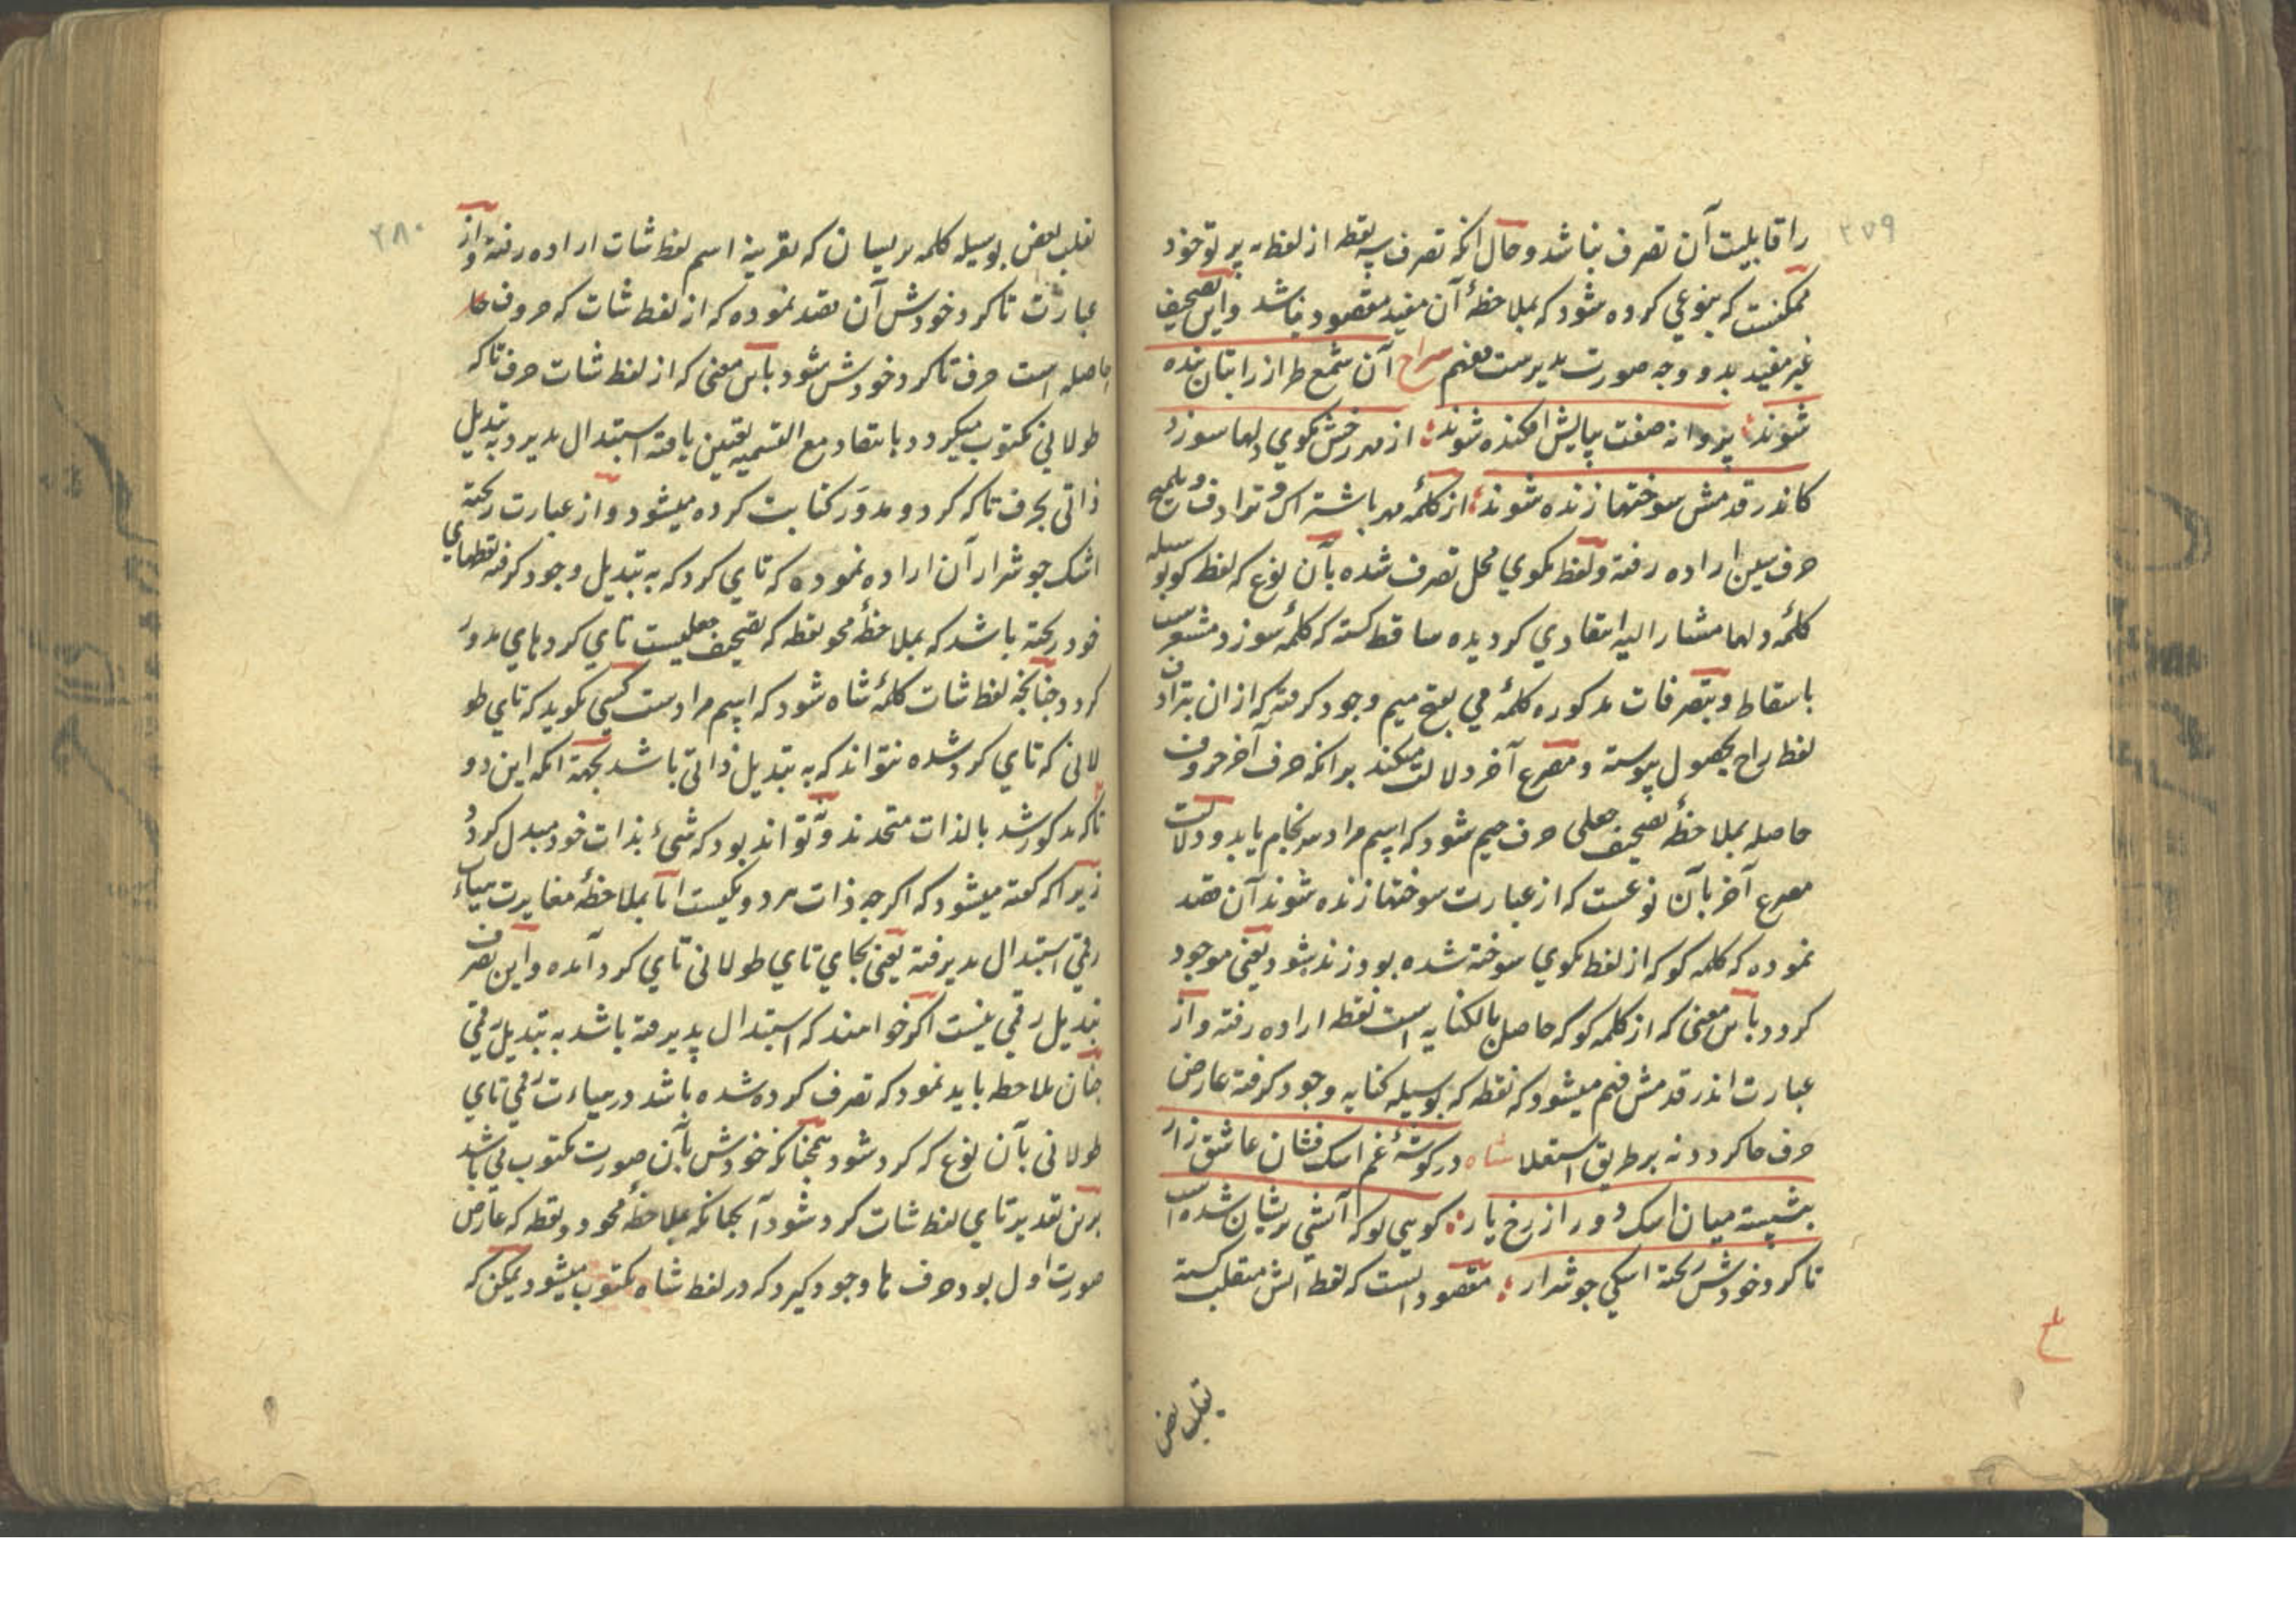 ۲۵۹
را قابلیت آن تصرف نباشد و حال انکه تصرف سه نقطه از لفظ به پرتو خود
ممکنست که بنوعی کرده شود که بملاحظهٔ آن مفید مقصود نباشد و این تصحیف
غیر مفید بدو وجه صورت پذیرست معنیم سراج آن شمع طراز را بتان بنده
شوند پروانه صفت بپایش افکنده شوند از مهر رخش بکوی دلها سوزد
کاندر قدمش سوختها زنده شوند از کلمهٔ مهر باشتراک و ترادف و تلمیح
حرف سین اراده رفته و لفظ بکوی محل تصرف شده بآن نوع که لفظ کو بوسیله
کلمهٔ دلها مشار الیه انتقادی کردیده ساقط کشته که کلمهٔ سوزد مشعرست
باسقاط و بتصرفات مذکوره کلمهٔ می بفتح میم وجود کرفته که از ان بترادف
لفظ راح بحصول پیوسته و مصرع آخر دلالت میکند بر انکه حرف آخر حروف
حاصله بملاحظهٔ تصحیف جعلی حرف جیم شود که اسم مراد سرانجام یابد و دلالت
مصرع آخر بآن نوعست که از عبارت سوختها زنده شوند آن قصد
نموده که کلمه کو که از لفظ بکوی سوخته شده بود زنده شود یعنی موجود
کردد باین معنی که از کلمه کو که حاصل بالکنایه است نقطه اراده رفته و از
عبارت اندر قدمش فهم میشود که نقطه که بوسیله کنایه وجود کرفته عارض
حرف حا کردد نه بر طریق استعلا شاه در کوشهٔ غم اشک فشان عاشق زار
بنشسته میان اشک دور از رخ یار کویی لو که آتشی پریشان شده است
تا کرد خودش ریخته اشکی جو شرار مقصود انست که لفظ آتش منقلب کشته
تقلب بعض
۲۸۰
تقلب بعض بوسیله کلمه پریشان که بقرینهٔ اسم لفظ شات اراده رفته و از
عبارت تا کرد خودش آن قصد نموده که از لفظ شات که حروف حا
حاصله است حرف تا کرد خودش شود باین معنی که از لفظ شات حرف تا که
طولانی مکتوب میکردد بانتقاد مع التسمیه تعیین یافته استبدال پذیرد به تبدیل
ذاتی بحرف تا که کرد و مدور کتابت کرده میشود و از عبارت ریخته
اشک جو شرار آن اراده نموده که تای کرد که به تبدیل وجود کرفته نقطهای
خود ریخته باشد که بملاحظهٔ محو نقطه که تصحیف جعلیست تای کرد های مدور
کردد جنانجه لفظ شات کلمهٔ شاه شود که اسم مرادست کسی نکوید که تای طو
لانی که تای کرد شده نتواند که به تبدیل ذاتی باشد بجهة انکه این دو
تا که مذکور شد بالذات متحدند و نتواند بود که شیٔ بذات خود مبدل کردد
زیرا که کفته میشود که اکر جه ذات هر دو یکیست اما بملاحظهٔ مغایرت هیات
رقمی استبدال پذیرفته یعنی بجای تای طولانی تای کرد آمده و این تصرف
تبدیل رقمی نیست اکر خواهند که استبدال پذیرفته باشد به تبدیل رقمی
جنان ملاحظه باید نمود که تصرف کرده شده باشد در هیات رقمی تای
طولانی بآن نوع که کرد شود همجنانکه خودش بآن صورت مکتوب می باشد
برین تقدیر تای لفظ شات کرد شود آنجنانکه بملاحظهٔ محو دو نقطه که عارض
صورت اول بود حرف ها وجود کیرد که در لفظ شاه مکتوب میشود یمکن که